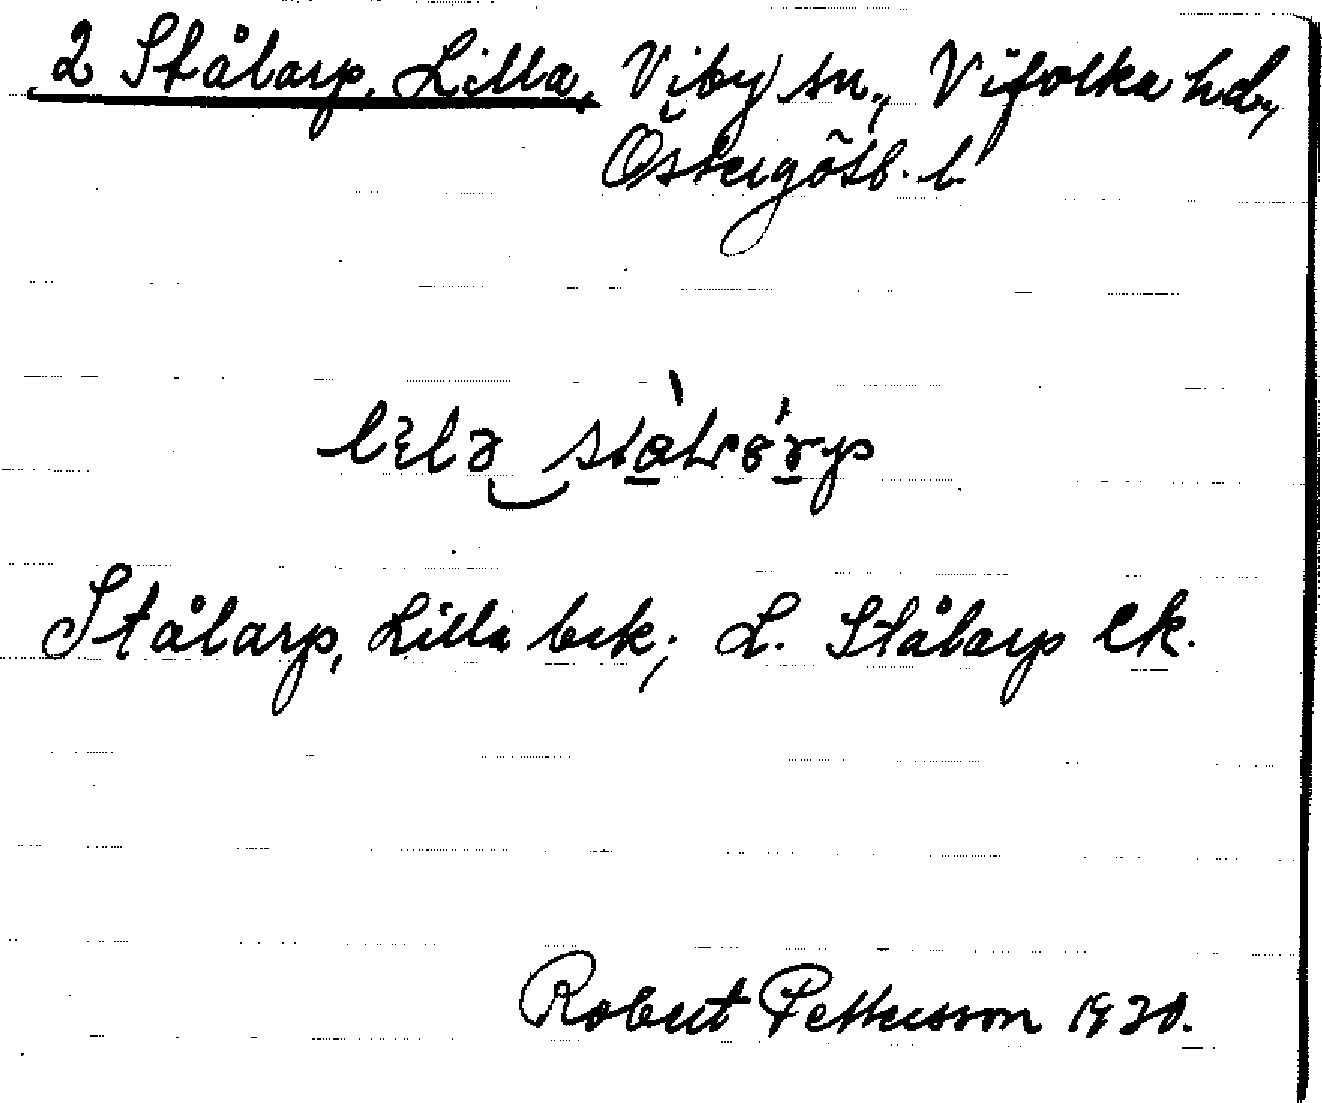 2 Stålarp, Lilla, Viby sn., Vifolka hd.,
Östergötl. l.
Stålarp, Lilla bek; L. Stålarp ek.
Robert Pettersson 1930.